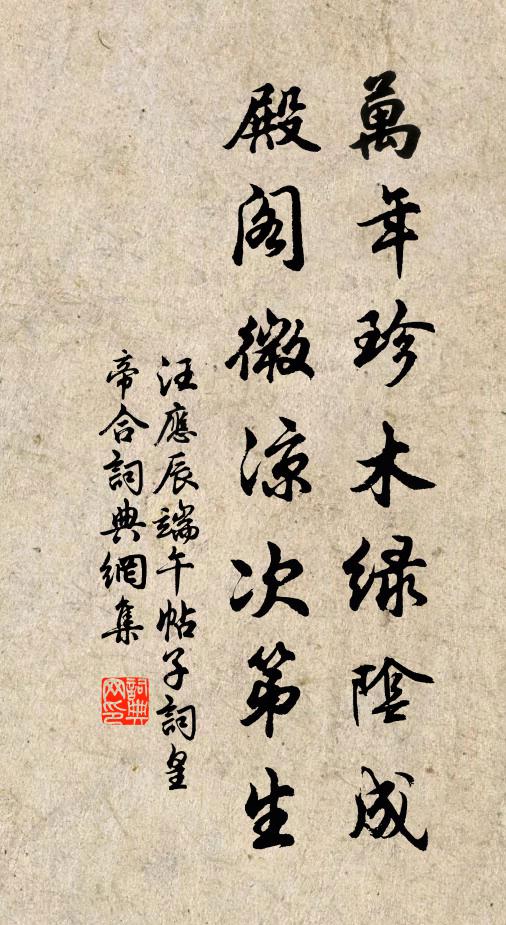 萬年珍木緑陰成
殿阁微涼次第生
汪應辰端午帖子詞皇
帝合詞典網集
詞典
网印